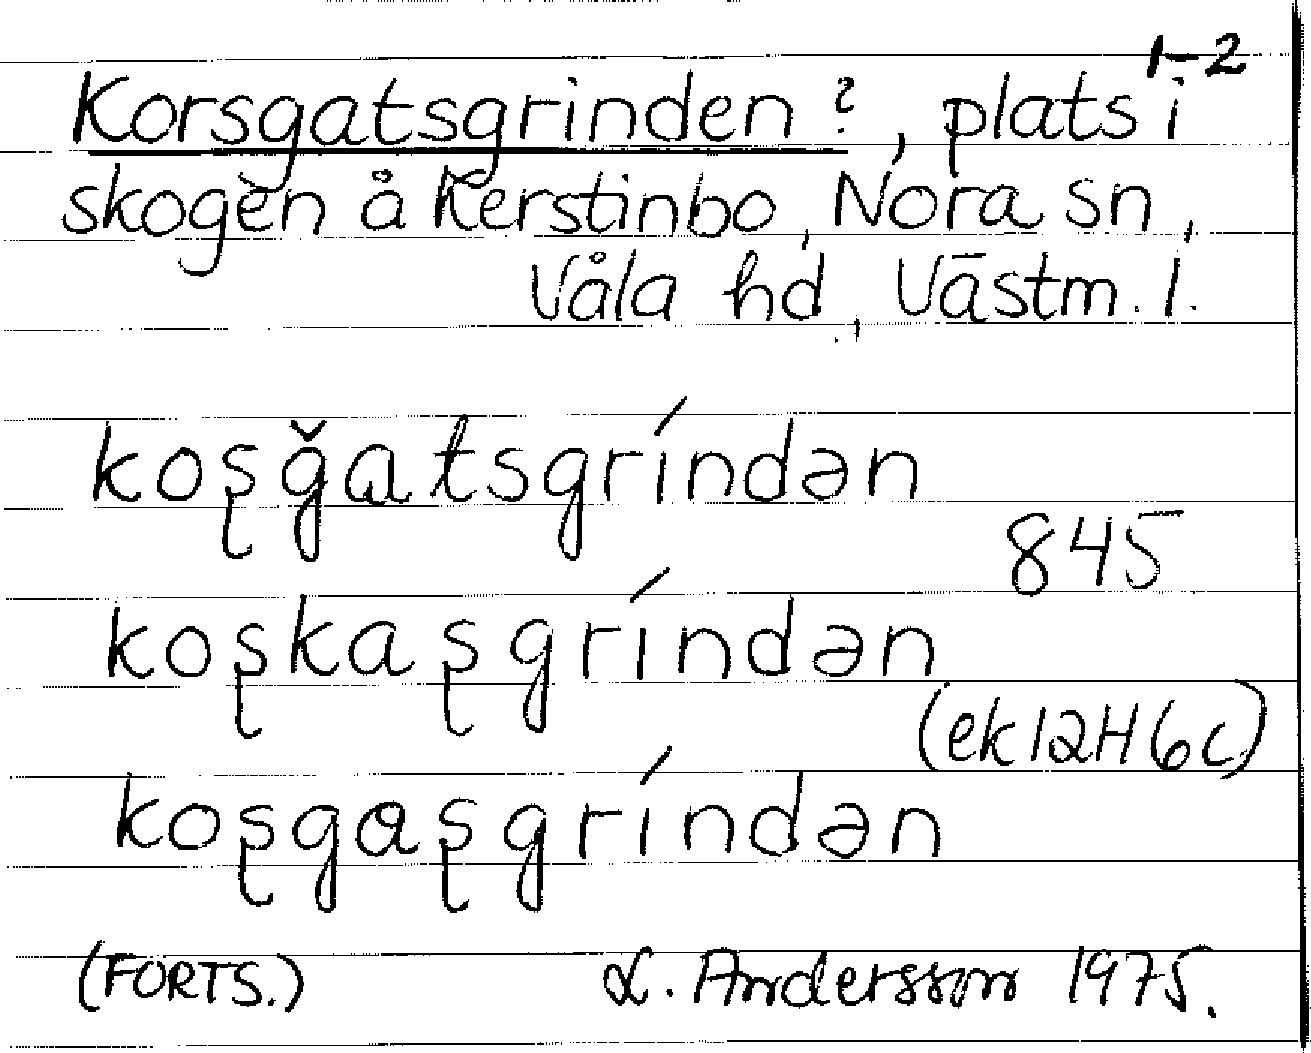 1-2
Korsgatsgrinden ?, plats i
skogen å Kerstinbo, Nora sn,
Våla hd, Västm. l.
koʂğatsgríndən
845
koʂkaʂgríndən
(ek 12H6c)
koʂgaʂgríndən
(FORTS.) L. Andersson 1975.